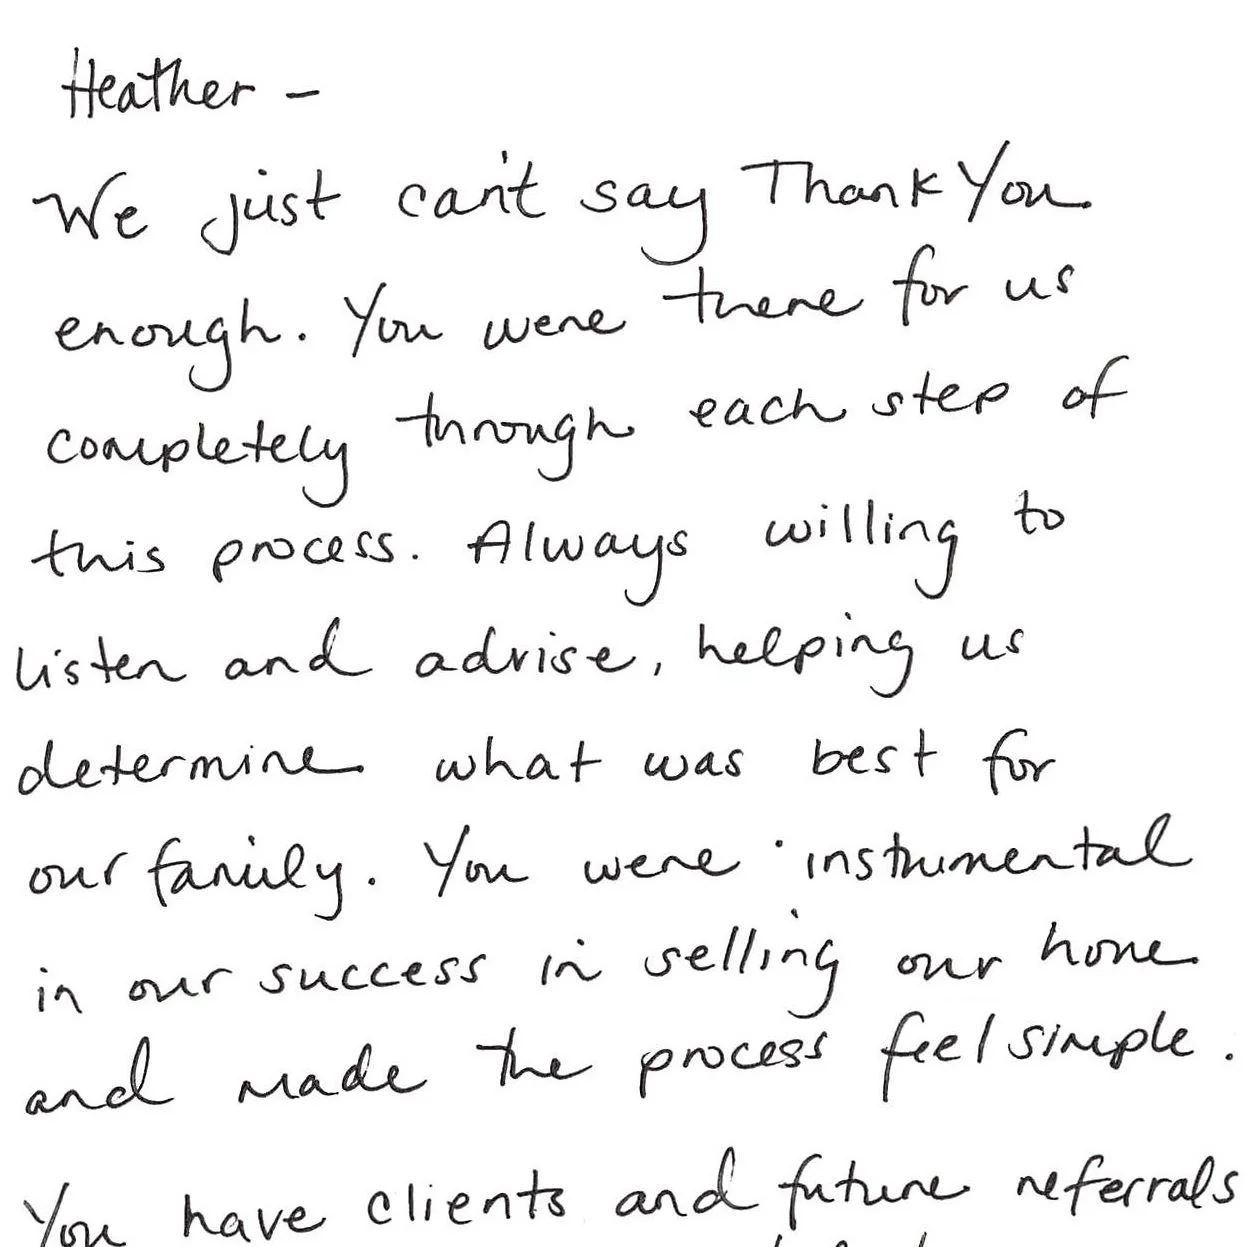 Heather –
We just can't say Thank You
enough. You were there for us
completely through each step of
this process. Always willing to
listen and advise, helping us
determine what was best for
our family. You were instrumental
in our success in selling our home
and made the process feel simple.
You have clients and future referrals